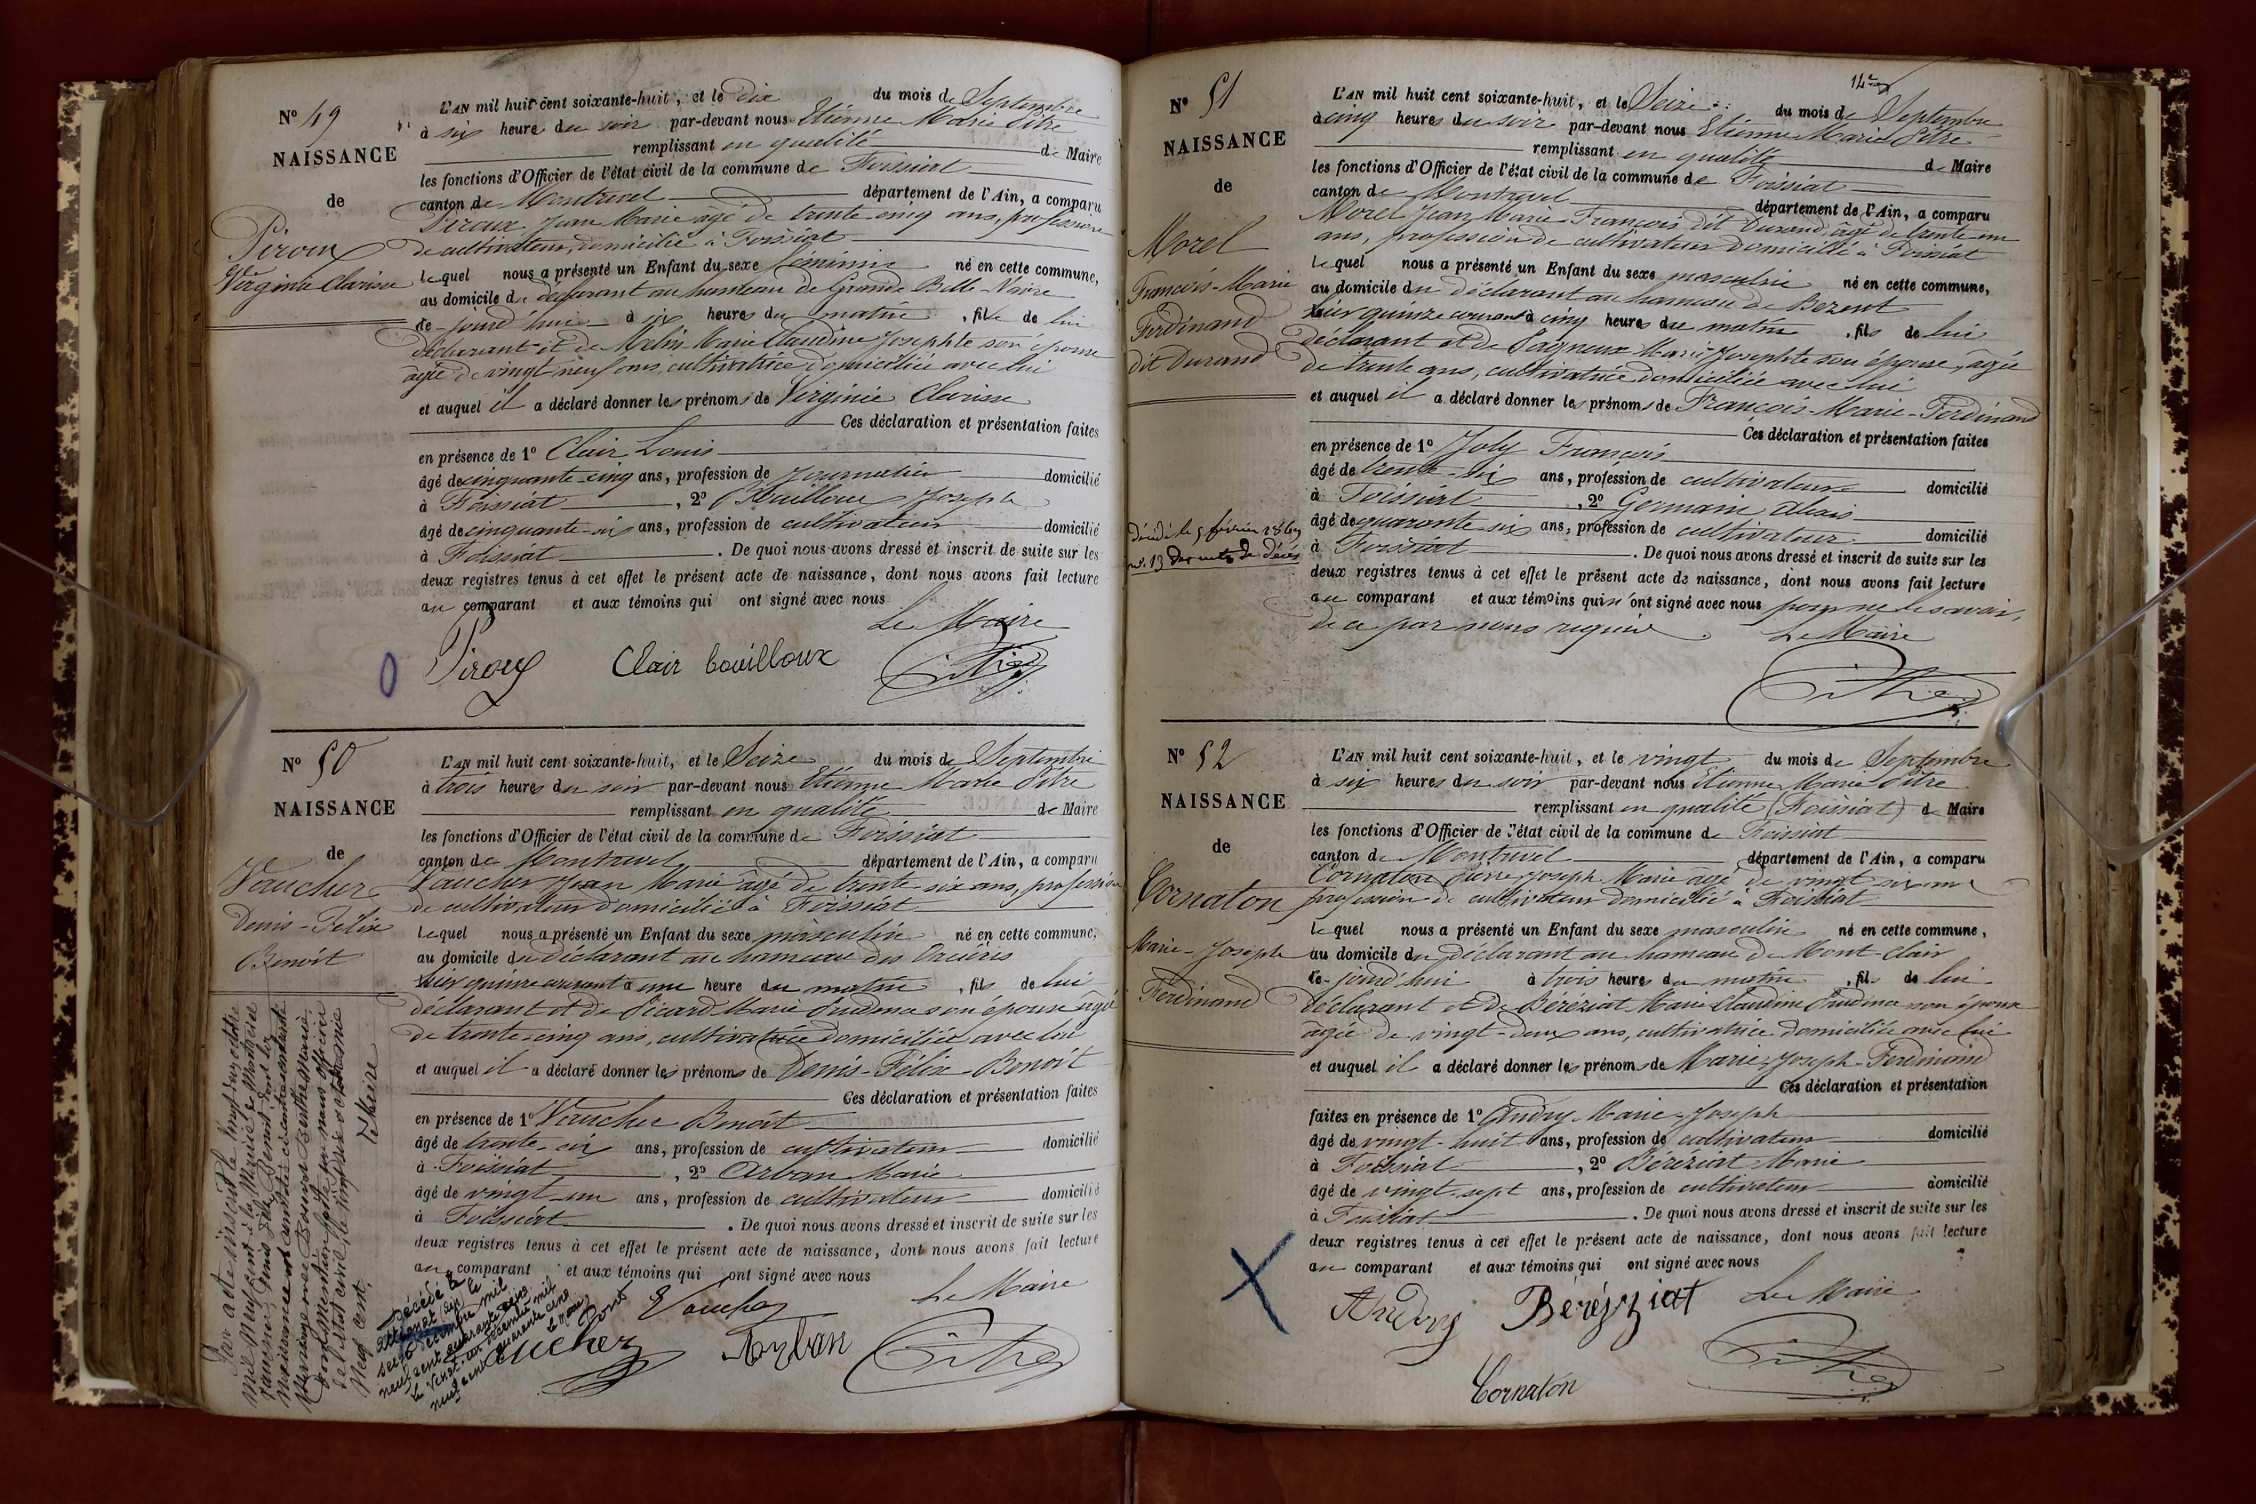 Nº 49
NAISSANCE
de
Piroux
Virginie Clarisse
L'AN mil huit cent soixante-huit, et le dix du mois de Septembre
à six heures du soir par-devant nous Etienne Marie Pitre
remplissant en qualité de Maire
les fonctions d'Officier de l'état civil de la commune de Foissiat
canton de Montrevel département de l'Ain, a comparu
Piroux Jean Marie âgé de trente cinq ans, profession
de cultivateur, domicilié à Foissiat
lequel nous a présenté un Enfant du sexe féminin né en cette commune,
au domicile du déclarant au hameau de Grande Belle-Vavre
ce jourd'hui à six heures du matin, fille de lui
déclarant et de Marie Claudine Josephte son épouse
âgée de vingt neuf ans, cultivatrice domiciliée avec lui
et auquel il a déclaré donner les prénoms de Virginie Clarisse
Ces déclaration et présentation faites
en présence de 1º Clair Louis
âgé de cinquante-cinq ans, profession de journalier domicilié
à Foissiat, 2º Bouilloux Joseph
âgé de cinquante-six ans, profession de cultivateur domicilié
à Foissiat. De quoi nous avons dressé et inscrit de suite sur les
deux registres tenus à cet effet le présent acte de naissance, dont nous avons fait lecture
au comparant et aux témoins qui ont signé avec nous
Le Maire
Piroux Clair bouilloux Pitre
Nº 50
NAISSANCE
de
Vaucher
Denis-Félix
Benoît
L'AN mil huit cent soixante-huit, et le Seize du mois de Septembre
à trois heures du soir par-devant nous Etienne Marie Pitre
remplissant en qualité de Maire
les fonctions d'Officier de l'état civil de la commune de Foissiat
canton de Montrevel département de l'Ain, a comparu
Vaucher Jean Marie âgé de trente six ans, profession
de cultivateur domicilié à Foissiat
lequel nous a présenté un Enfant du sexe masculin né en cette commune,
au domicile du déclarant au hameau des
hier quinze courant à une heure du matin, fils de lui
déclarant et de Picard Marie Prudence son épouse âgée
de trente-cinq ans, cultivatrice domiciliée avec lui
et auquel il a déclaré donner les prénoms de Denis-Félix-Benoît
Ces déclaration et présentation faites
en présence de 1º Vaucher Benoît
âgé de trente-six ans, profession de cultivateur domicilié
à Foissiat, 2º Arban Marie
âgé de vingt-un ans, profession de cultivateur domicilié
à Foissiat. De quoi nous avons dressé et inscrit de suite sur les
deux registres tenus à cet effet le présent acte de naissance, dont nous avons fait lecture
au comparant et aux témoins qui ont signé avec nous
Le Maire
Vaucher
Vaucher Arban Pitre
Par acte inscrit le vingt sept octobre
mil neuf cent à la Mairie de
Denis Félix Benoit dont la
naissance est constatée ci contre a contracté
Mariage avec
dont Mention faite par nous officier
de l'état civil le
Neuf cent.
Le Maire
Décédé à
Attignat le
seize décembre mil
neuf cent quarante cinq
le vingt un décembre mil
neuf cent quarante cinq
14e
Nº 51
NAISSANCE
de
Morel
François-Marie
Ferdinand
dit Durand
décédé le 5 février 1869
nº 13 des actes de décès
L'AN mil huit cent soixante-huit, et le Seize du mois de Septembre
à cinq heures du soir par-devant nous Etienne Marie Pitre
remplissant en qualité de Maire
les fonctions d'Officier de l'état civil de la commune de Foissiat
canton de Montrevel département de l'Ain, a comparu
Morel Jean Marie-François dit Durand, âgé de trente un
ans, profession de cultivateur domicilié à Foissiat
lequel nous a présenté un Enfant du sexe masculin né en cette commune,
au domicile du déclarant au hameau de Bezent
hier quinze courant à cinq heures du matin, fils de lui
déclarant et de Pagneux Marie Josephte son épouse, âgée
de trente ans, cultivatrice domiciliée avec lui
et auquel il a déclaré donner les prénoms de François-Marie-Ferdinand
Ces déclaration et présentation faites
en présence de 1º Joly François
âgé de trente-six ans, profession de cultivateur domicilié
à Foissiat, 2º Germain Alexis
âgé de quarante-six ans, profession de cultivateur domicilié
à Foissiat. De quoi nous avons dressé et inscrit de suite sur les
deux registres tenus à cet effet le présent acte de naissance, dont nous avons fait lecture
au comparant et aux témoins qui n'ont signé avec nous pour ne le savoir,
de ce par nous requis. Le Maire
Pitre
Nº 52
NAISSANCE
de
Cornaton
Marie-Joseph
Ferdinand
L'AN mil huit cent soixante-huit, et le vingt du mois de Septembre
à six heures du soir par-devant nous Etienne Marie Pitre
remplissant en qualité (Foissiat) de Maire
les fonctions d'Officier de l'état civil de la commune de Foissiat
canton de Montrevel département de l'Ain, a comparu
Cornaton Pierre Joseph Marie âgé de vingt six ans
profession de cultivateur domicilié à Foissiat
lequel nous a présenté un Enfant du sexe masculin né en cette commune,
au domicile du déclarant au hameau de Mont-Clair
ce jourd'hui à trois heures du matin, fils de lui
déclarant et de Béréziat Marie Claudine Prudence son épouse
âgée de vingt-deux ans, cultivatrice domiciliée avec lui
et auquel il a déclaré donner les prénoms de Marie-Joseph-Ferdinand
Ces déclaration et présentation
faites en présence de 1º Andry Marie-Joseph
âgé de vingt-huit ans, profession de cultivateur domicilié
à Foissiat, 2º Béréziat Marie
âgé de vingt-sept ans, profession de cultivateur domicilié
à Foissiat. De quoi nous avons dressé et inscrit de suite sur les
deux registres tenus à cet effet le présent acte de naissance, dont nous avons fait lecture
au comparant et aux témoins qui ont signé avec nous
Le Maire
Andry Béréziat
Pitre
Cornaton